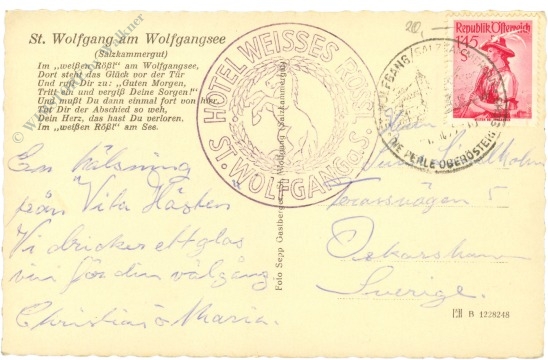 St. Wolfgang am Wolfgangsee
(Salzkammergut)
Im „weißen Rößl“ am Wolfgangsee,
Dort steht das Glück vor der Tür
Und ruft Dir zu: „Guten Morgen,
Tritt ein und vergiß Deine Sorgen!“
Und mußt Du dann einmal fort von hier
Tut Dir der Abschied so weh,
Dein Herz, das hast Du verloren.
Im „weißen Rößl“ am See.
HOTEL WEISSES RÖSSL
ST. WOLFGANG a. S.
Republik Österreich
1·45
S
PERLE
Foto Sepp Gastberger, St. Wolfgang (Salzkammergut)
En hälsning
från Vita Hästen
Vi dricker ett glas
vin för din välgång
Christian o Maria.
Terassvägen 5
Oskarshamn
Sverige.
B 1228248